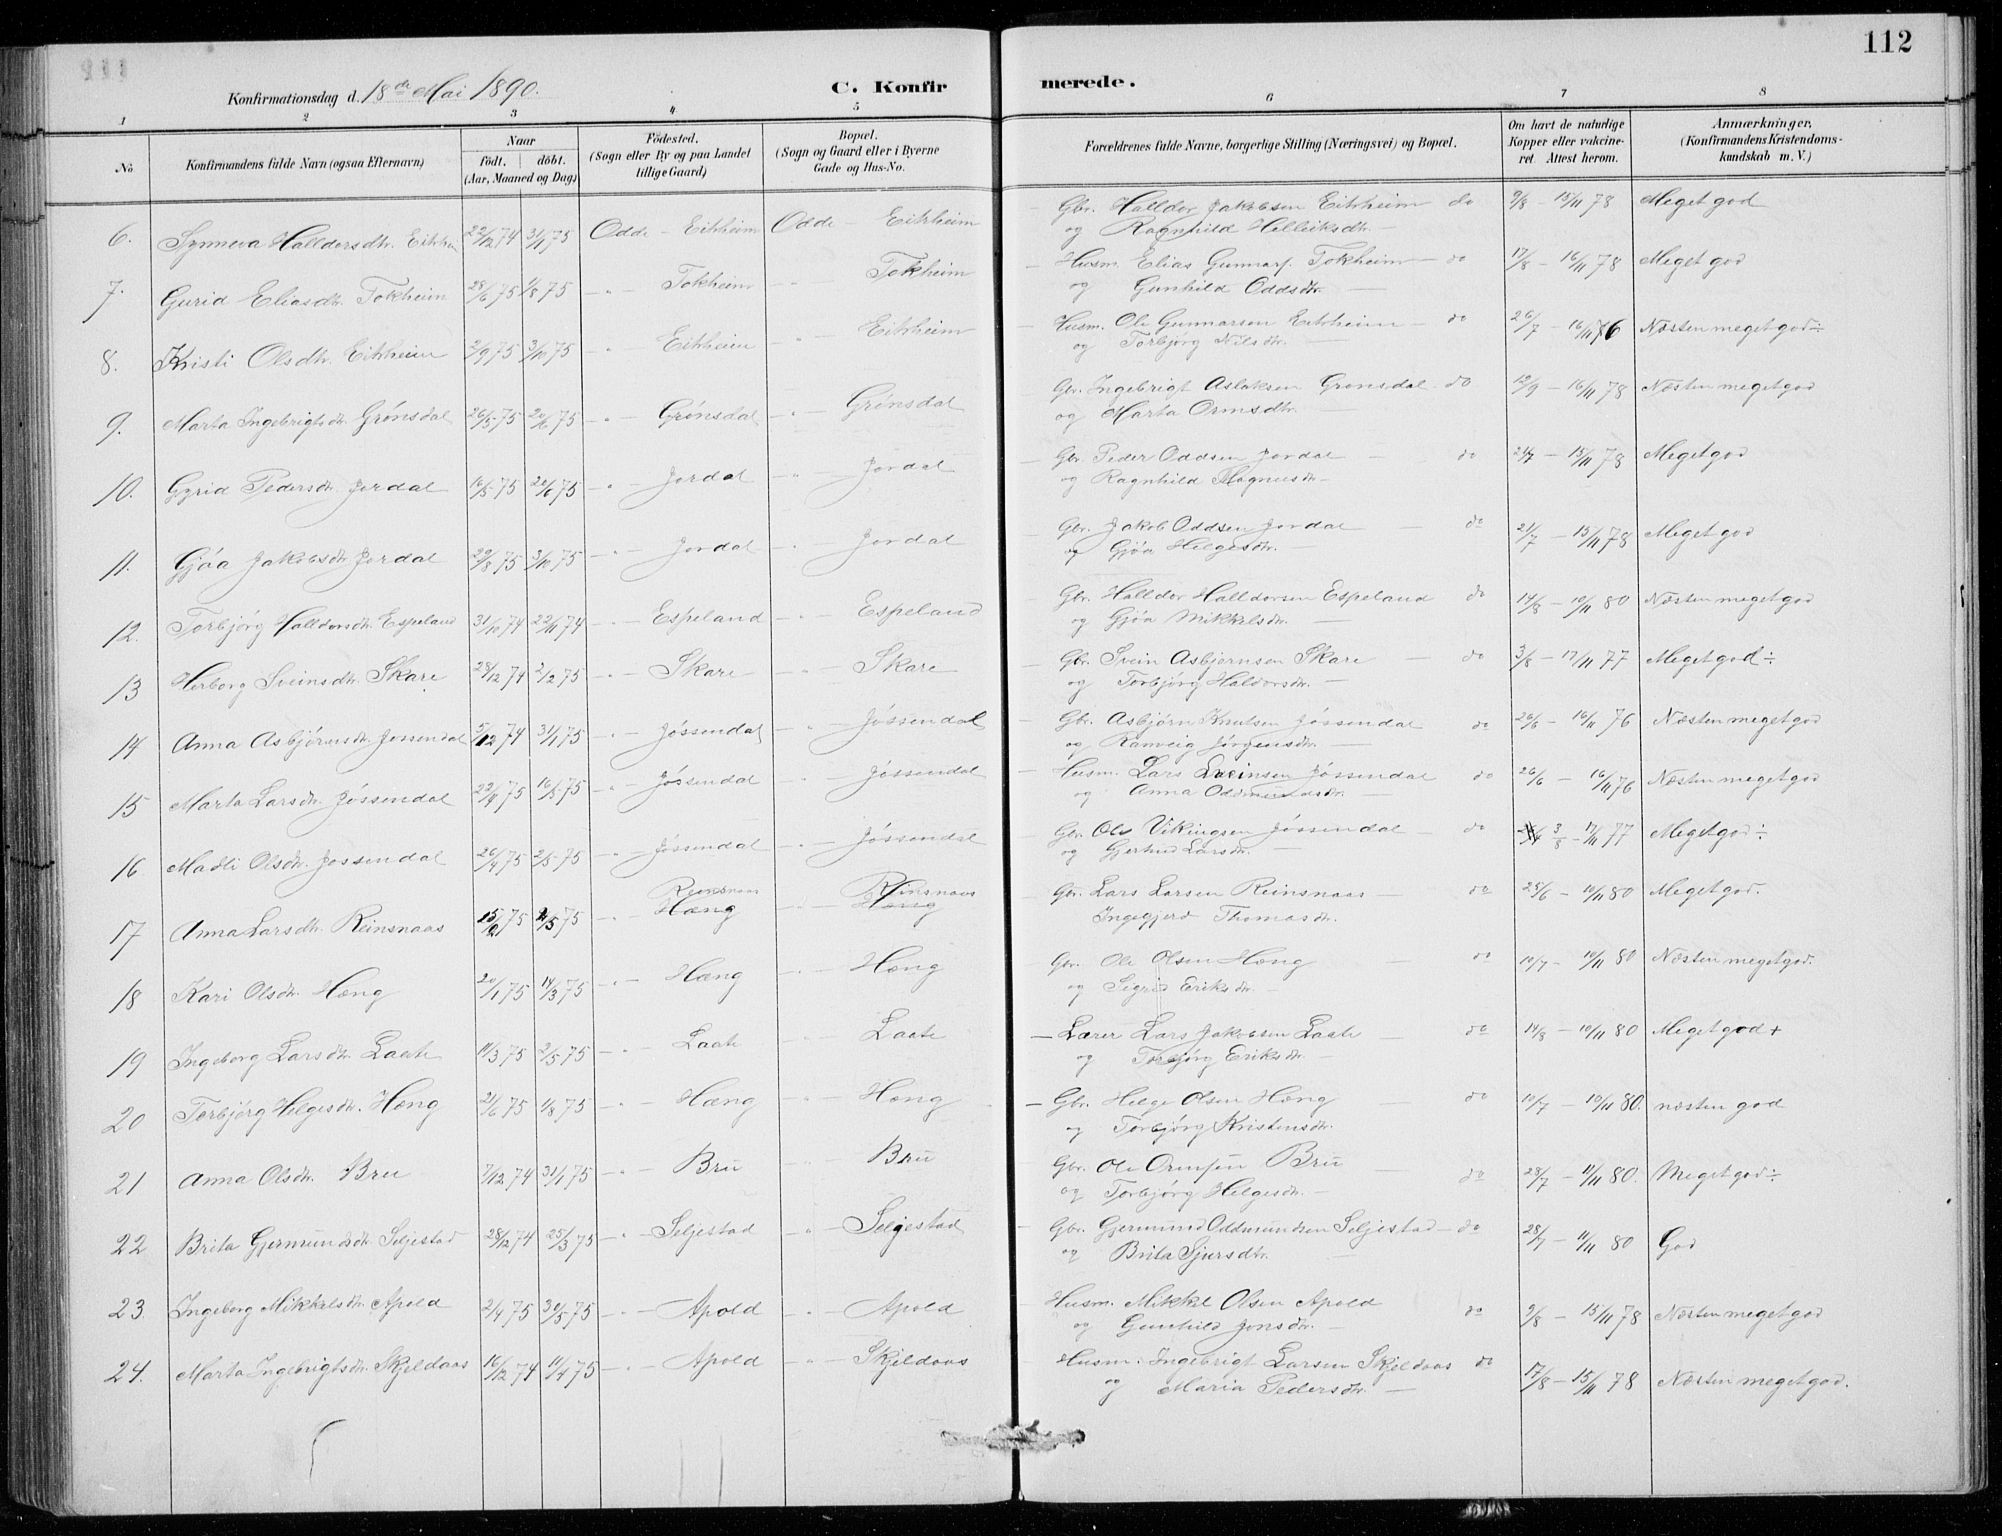 112
Konfirmationsdag d. 18de Mai 1890.
C. Konfirmerede.
1 2 3 4 5 6 7 8
No.
Konfirmandens fulde Navn (ogsaa Efternavn)
Naar
födt. döbt.
(Aar, Maaned og Dag)
Födested.
(Sogn eller By og paa Landet
tillige Gaard)
Bopæl.
(Sogn og Gaard eller i Byerne
Gade og Hus-No.
Forældrenes fulde Navne, borgerlige Stilling (Næringsvei) og Bopæl.
Om havt de naturlige
Kopper eller vakcine-
ret. Attest herom.
Anmærkninger,
(Konfirmandens Kristendoms-
kundskab m. V.)
6. Synneva Halldorsdtr. Eitrheim 31/1 75 Odde - Eitrheim Odde - Eitrheim Gbr. Halldor Jakobsen Eitrheim do 9/8 - 15/11 78 Meget god
og Ragnhild Helleiksdtr.
7. Gurid Eliasdtr. Tokheim 28/6 75 1/8 75 - " - Tokheim - " - Tokheim Husm. Elias Gunnars. Tokheim do 17/8 - 16/11 78 Meget god
og Gunhild Oddsdtr.
8. Kristi Olsdtr. Eitrheim 2/9 75 3/10 75 - " - Eitrheim - " - Eitrheim Husm. Ole Gunnarsen Eitrheim do 26/7 - 16/11 76 Næsten meget god ÷
og Torbjørg Nilsdtr.
9. Marta Ingebrigtsdtr. Grønsdal 26/5 75 20/6 75 - " - Grønsdal - " - Grønsdal Gbr. Ingebrigt Aslaksen Grønsdal do 12/9 - 16/11 78 Næsten meget god
og Marta Ormsdtr.
10. Gyrid Pedersdtr. Jordal 16/5 75 20/6 75 - " - Jordal - " - Jordal Gbr. Peder Oddsen Jordal do 21/7 - 15/11 78 Meget god
og Ragnhild Magnusdtr.
11. Gjøa Jakobsdtr. Jordal 29/8 75 3/10 75 - " - Jordal - " - Jordal Gbr. Jakob Oddsen Jordal do 21/7 - 15/11 78 Meget god
og Gjøa Helgesdtr.
12. Torbjørg Halldorsdtr. Espeland 31/10 74 22/11 74 - " - Espeland - " - Espeland Gbr. Halldor Halldorsen Espeland do 14/8 - 10/11 80 Næsten meget god
og Gjøa Mikkelsdtr.
13 Herborg Sveinsdtr. Skare 28/12 74 2/2 75 - " - Skare - " - Skare Gbr. Svein Asbjørnsen Skare do 3/8 - 17/11 77 Meget god ÷
og Torbjørg Haldorsdtr.
14 Anna Asbjørnsdtr. Jøssendal 5/12 74 31/1 75 - " - Jøssendal - " - Jøssendal Gbr. Asbjørn Knutsen Jøssendal do 26/6 - 16/11 76 Næsten meget god
og Ranveig Jørgensdtr.
15 Marta Larsdtr. Jøssendal 22/4 75 16/5 75 - " - Jøssendal - " - Jøssendal Husm. Lars Sveinsen Jøssendal do 26/6 - 16/11 76 Næsten meget god
og Anna Oddmundsdtr.
16 Madli Olsdtr. Jøssendal 26/4 75 2/5 75 - " - Jøssendal - " - Jøssendal Gbr. Ole Vikingsen Jøssendal do 3/8 - 17/11 77 Meget god ÷
og Gjertrud Larsdtr.
17 Anna Larsdtr. Reinsnaas 15/2 75 75 - " - Reinsnaas Hæng - " - Reinsnaas Hæng Gbr. Lars Larsen Reinsnaas do 25/6 - 10/11 80 Meget god.
Ingegjerd Thomasdtr.
18 Kari Olsdtr. Hæng 20/1 75 14/3 75 - " - Hæng - " - Hæng Gbr. Ole Olsen Hæng do 10/7 - 10/11 80 Næsten meget god.
og Sigrid Eriksdtr.
19 Ingeborg Larsdtr. Laate 11/3 75 2/5 75 - " - Laate - " - Laate Lærer Lars Jakobsen Laate do 14/8 - 10/11 80 Meget god +
og Torbjørg Eriksdtr.
20 Torbjørg Helgesdtr. Hæng 21/6 75 1/8 75 - " - Hæng - " - Hæng Gbr. Helge Olsen Hæng do 10/7 - 10/11 80. næsten god
og Torbjørg Kristensdtr.
21 Anna Olsdtr. Bru 7/12 74 31/1 75 - " - Bru - " - Bru Gbr. Ole Ormsen Bru do 28/7 - 11/11 80. Meget god ÷
og Torbjørg Helgesdtr.
22 Brita Gjermundsdtr. Seljestad 28/12 74 25/3 75 - " - Seljestad - " - Seljestad Gbr. Gjermund Oddmundsen Seljestad do 28/7 - 11/11 80 God
og Brita Sjursdtr.
23. Ingeborg Mikkelsdtr. Apold 2/4 75 30/5 75 - " - Apold - " - Apold Husm. Mikkel Olsen Apold do 9/8 - 15/11 78 Næsten meget god
og Gunhild Jonsdtr.
24. Marta Ingebrigtsdtr. Skjeldaas 16/12 74 11/4 75 - " - Apold - " - Skjeldaas Husm. Ingebrigt Larsen Skjeldaas do 17/8 - 15/11 78 Næsten meget god.
og Maria Pedersdtr.